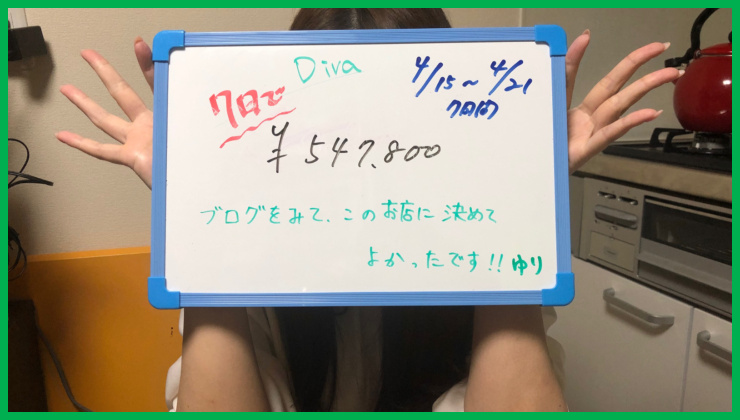 Diva
4/15～4/21
7日間
7日で
¥547.800
ブログをみて、このお店に決めて
よかったです!! ゆり